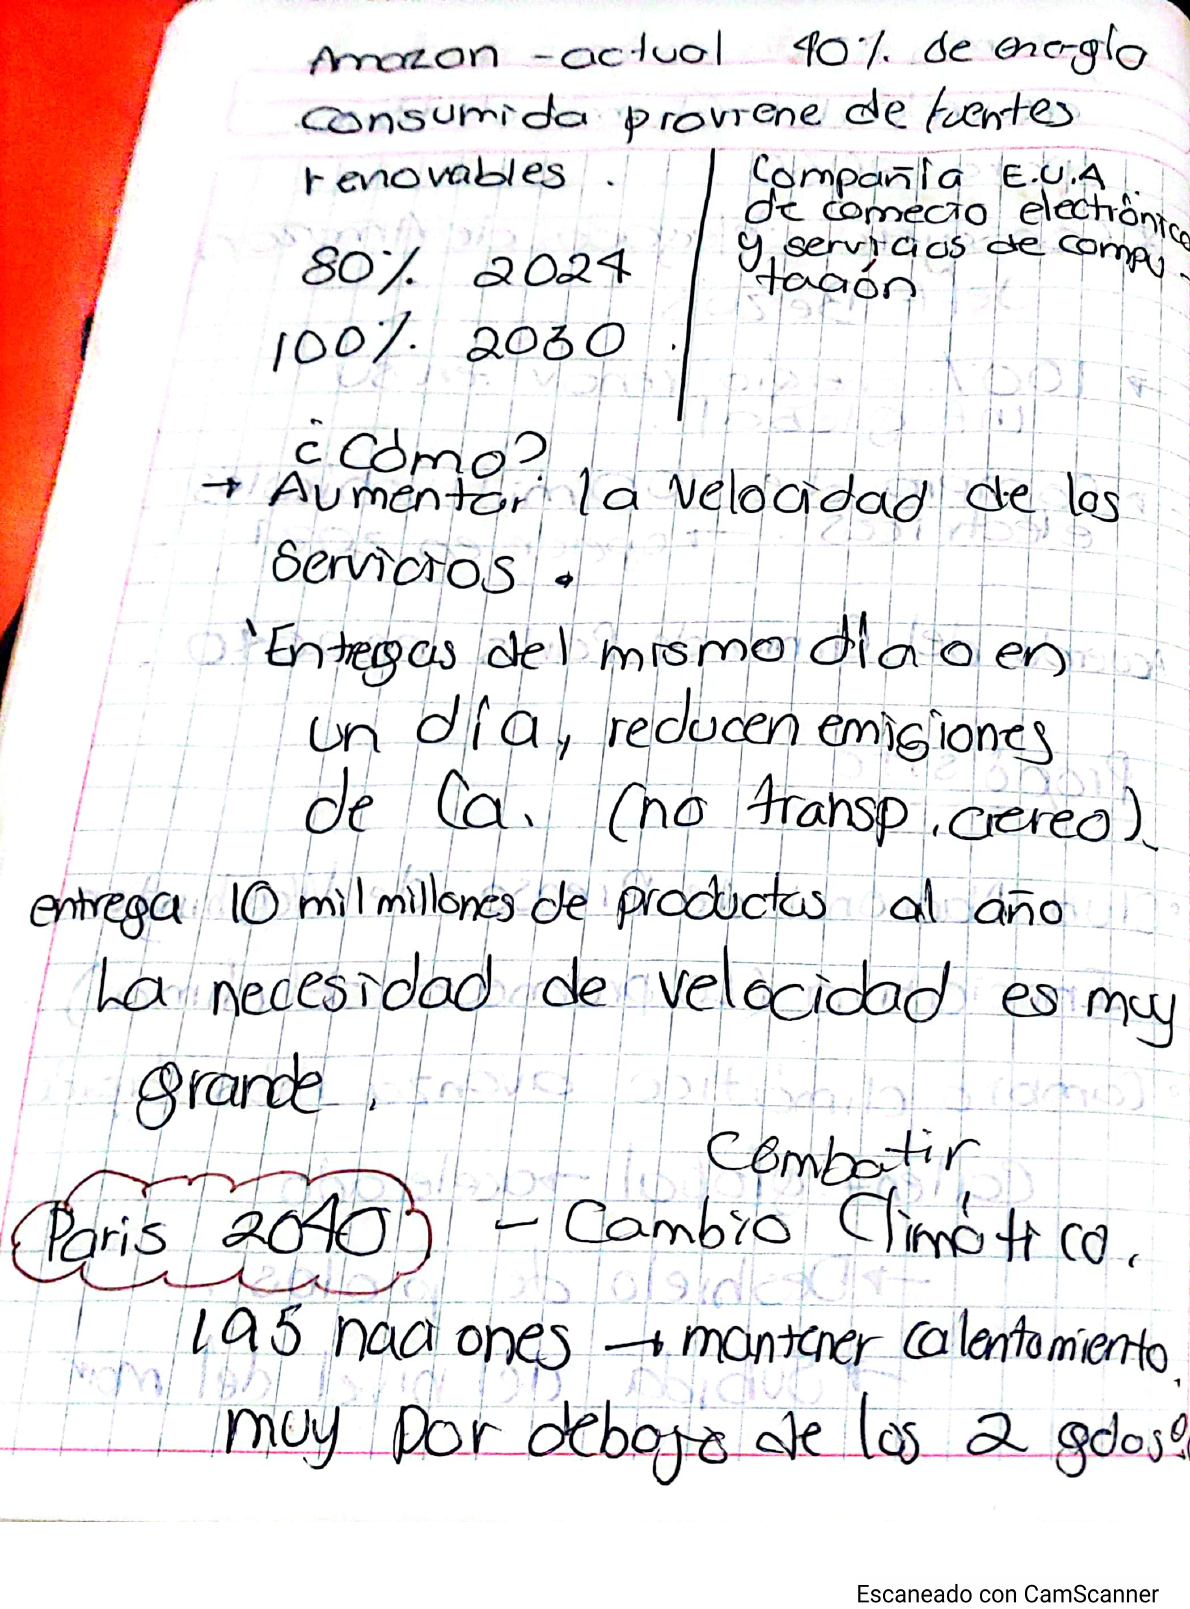 Amazon - actual 40% de energía
consumida proviene de fuentes
renovables.
Compañía E.U.A.
de comecio electrónico
y servicios de compu-
tación
80% 2024
100% 2030.
¿Cómo?
→ Aumentar la velocidad de los
servicios.
Entregas del mismo día o en
un día, reducen emisiones
de Ca. (no transp. aereo).
entrega 10 mil millones de productos al año
La necesidad de velocidad es muy
grande.
Combatir
Paris 2040 - Cambio Climático.
195 naciones → mantener calentamiento
muy por debajo de los 2 gdos
Escaneado con CamScanner